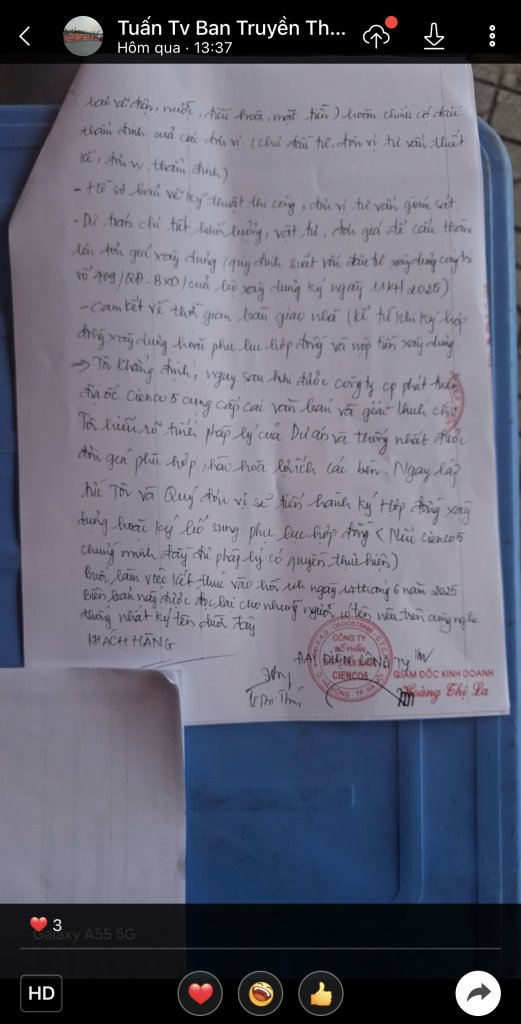 Tuấn Tv Ban Truyền Th...
Hôm qua · 13:37
bản vẽ điện, nước, điều hoà, mặt tiền) hoàn chỉnh có dấu
thẩm định của các đơn vị (chủ đầu tư, đơn vị tư vấn thiết
kế, đơn vị thẩm định)
- Hồ sơ bản vẽ kỹ thuật thi công, đơn vị tư vấn giám sát.
- Dự toán chi tiết khối lượng, vật tư, đơn giá để cấu thành
lên đơn giá xây dựng (quy định suất vốn đầu tư xây dựng công trình
số 409/QĐ-BXD/của bộ xây dựng ký ngày 11/4/2025)
- Cam kết về thời gian bàn giao nhà (kể từ khi ký hợp
đồng xây dựng hoặc phụ lục hợp đồng và nộp tiền xây dựng.
→ Tôi khẳng định, ngay sau khi được công ty cp phát triển
địa ốc Cienco5 cung cấp các văn bản và giải thích cho
Tôi hiểu rõ tính pháp lý của Dự án và thống nhất được
đơn giá phù hợp, hài hoà lợi ích các bên. Ngay lập
tức Tôi và Quý đơn vị sẽ tiến hành ký Hợp đồng xây
dựng hoặc ký bổ sung phụ lục hợp đồng (Nếu Cienco5
chứng minh đầy đủ pháp lý có quyền thực hiện)
Buổi làm việc kết thúc vào hồi ngày 14 tháng 6 năm 2025
Biên bản này được đọc lại cho những người có tên nêu trên cùng nghe
thống nhất ký tên dưới đây
KHÁCH HÀNG
ĐẠI DIỆN CÔNG TY
CÔNG TY
CỔ PHẦN
CIENCO5
Q. HÀ ĐÔNG - TP. HÀ NỘI
GIÁM ĐỐC KINH DOANH
Hoàng Thị La
3
Galaxy A55 5G
HD